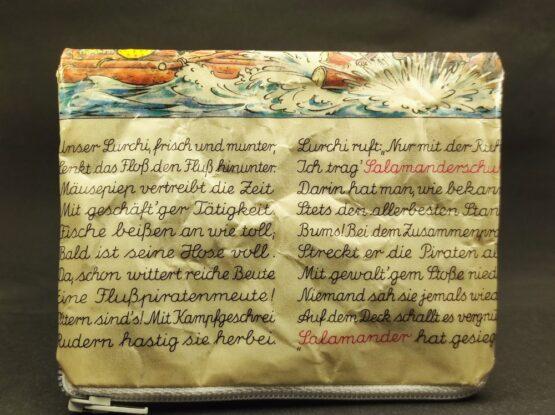 Unser Lurchi, frisch und munter,
lenkt das Floß den Fluß hinunter.
Mäusepiep vertreibt die Zeit
Mit geschäft'ger Tätigkeit.
Fische beißen an wie toll,
Bald ist seine Hose voll.
Da, schon wittert reiche Beute
Eine Flußpiratenmeute!
Ottern sind's! Mit Kampfgeschrei
Rudern hastig sie herbei.
Lurchi ruft: „Nur mit der
Ich trag' Salamanderschu
Darin hat man, wie bekan
Stets den allerbesten Stan
Bums! Bei dem Zusammenpra
Streckt er die Piraten a
Mit gewalt'gem Stoße nied
Niemand sah sie jemals wied
Auf dem Deck schallt es vergnü
„Salamander hat gesieg